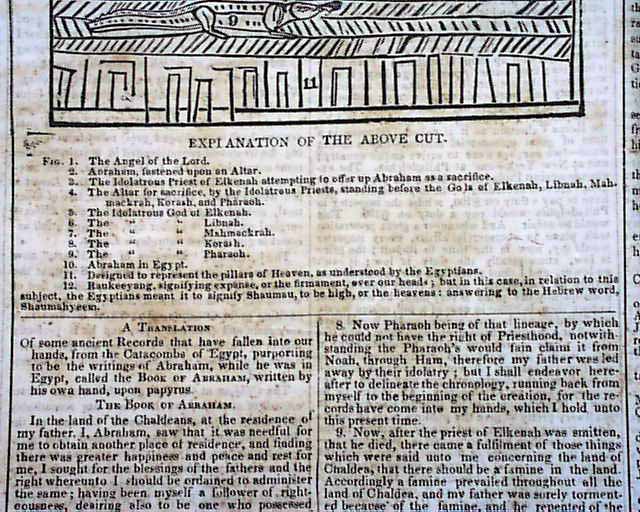 9
11
EXPLANATION OF THE ABOVE CUT.
FIG. 1. The Angel of the Lord.
2. Abraham, fastened upon an Altar.
3. The Idolatrous Priest of Elkenah attempting to offer up Abraham as a sacrifice.
4. The Altar for sacrifice, by the Idolatrous Priests, standing before the Gods of Elkenah, Libnah, Mah-
mackrah, Korash, and Pharaoh.
5. The Idolatrous God of Elkenah.
6. The " " Libnah.
7. The " " Mahmackrah.
8. The " " Korash.
9. The " " Pharaoh.
10. Abraham in Egypt.
11. Designed to represent the pillars of Heaven, as understood by the Egyptians.
12. Raukeeyang, signifying expanse, or the firmament, over our heads; but in this case, in relation to this
subject, the Egyptians meant it to signify Shaumau, to be high, or the heavens: answering to the Hebrew word,
Shaumahyeem.
A TRANSLATION
Of some ancient Records that have fallen into our
hands, from the Catacombs of Egypt, purporting
to be the writings of Abraham, while he was in
Egypt, called the BOOK OF ABRAHAM, written by
his own hand, upon papyrus.
THE BOOK OF ABRAHAM.
In the land of the Chaldeans, at the residence of
my father, I, Abraham, saw that it was needful for
me to obtain another place of residence, and finding
there was greater happiness and peace and rest for
me, I sought for the blessings of the fathers and the
right whereunto I should be ordained to administer
the same; having been myself a follower of right-
eousness, desiring also to be one who possessed
8. Now Pharaoh being of that lineage, by which
he could not have the right of Priesthood, notwith-
standing the Pharaoh's would fain claim it from
Noah, through Ham, therefore my father was led
away by their idolatry; but I shall endeavor here-
after to delineate the chronology, running back from
myself to the beginning of the creation, for the re-
cords have come into my hands, which I hold unto
this present time.
9. Now, after the priest of Elkenah was smitten,
that he died, there came a fulfilment of those things
which were said unto me concerning the land of
Chaldea, that there should be a famine in the land.
Accordingly a famine prevailed throughout all the
land of Chaldea, and my father was sorely torment-
ed because of the famine, and he repented of the